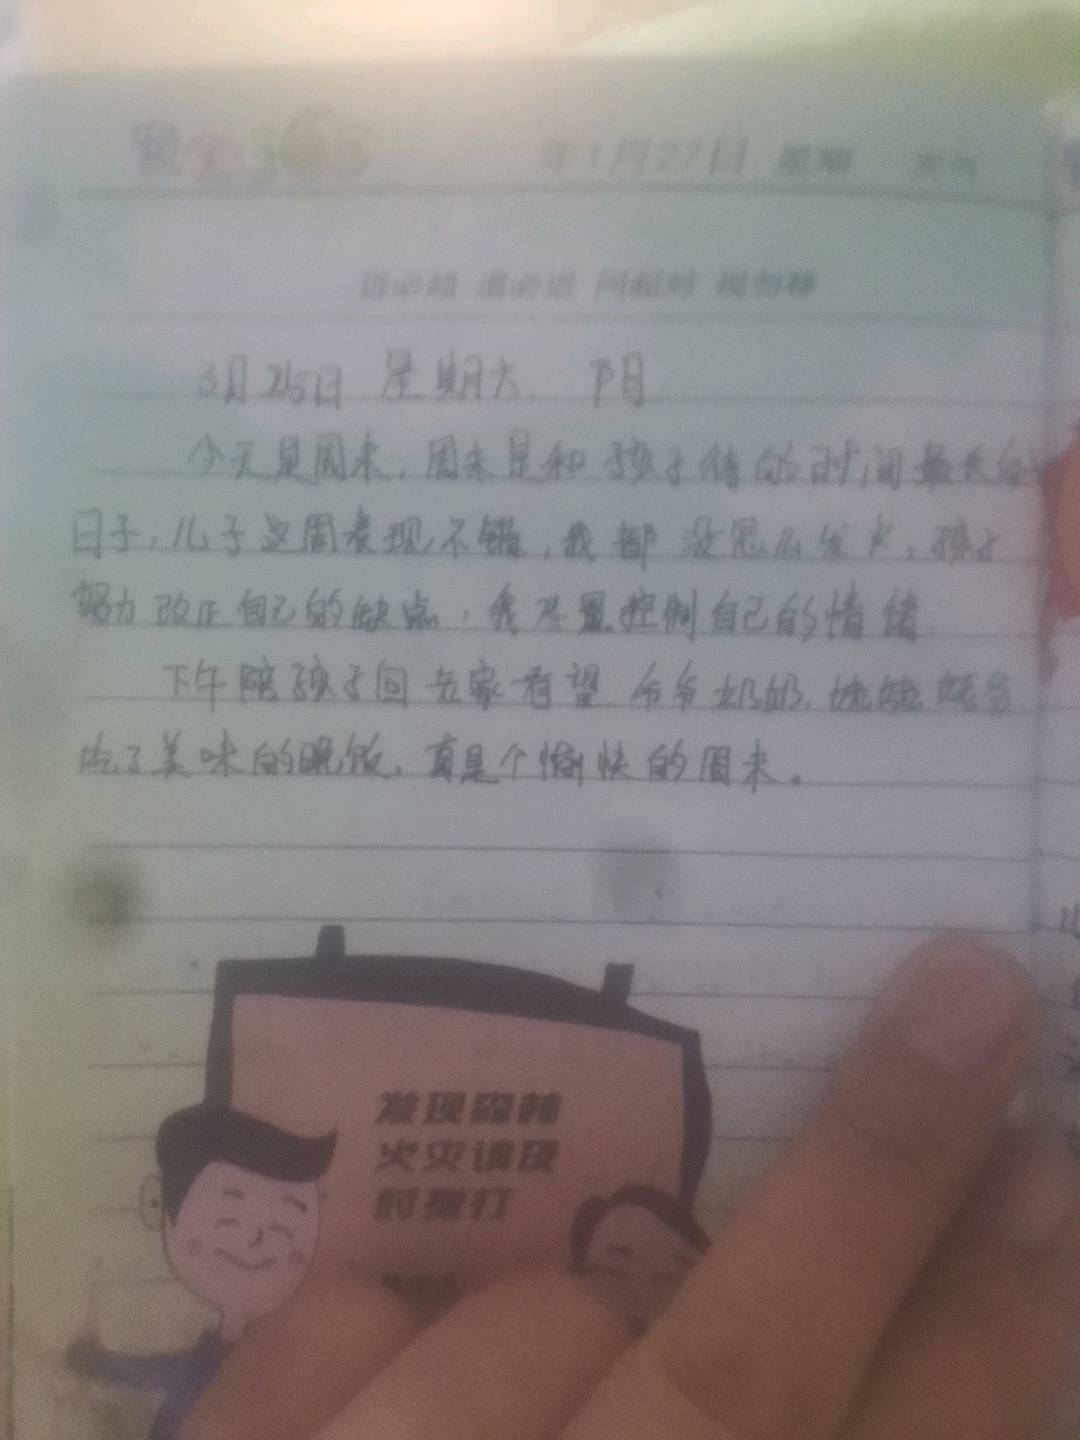 安全365 年1月27日 星期 天气
进必趋 退必迟 问起对 视勿移
3月25日 星期六. 阴
今天是周末,周末是和孩子待的时间最长的
日子,儿子这周表现不错,我都没怎么发火,孩子
努力改正自己的缺点,我尽量控制自己的情绪
下午陪孩子回老家看望爷爷奶奶,
吃了美味的晚饭,真是个愉快的周末。
发现森林
火灾请及
时拨打